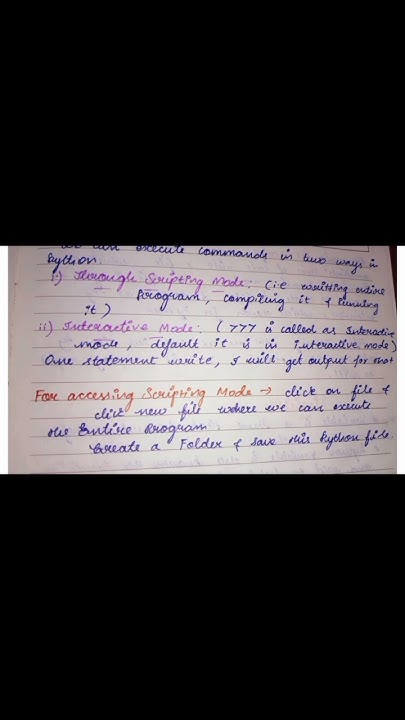 We can execute commands in two ways in
Python
i) Through Scripting Mode: (i.e writting entire
Program, compiling it & running
it)
ii) Interactive Mode: (777 is called as Interactive
mode, default it is in interactive mode)
One statement write, I will get output for that
For accessing Scripting Mode → click on file &
click new file where we can execute
the Entire Program
Create a Folder & save this Python file.